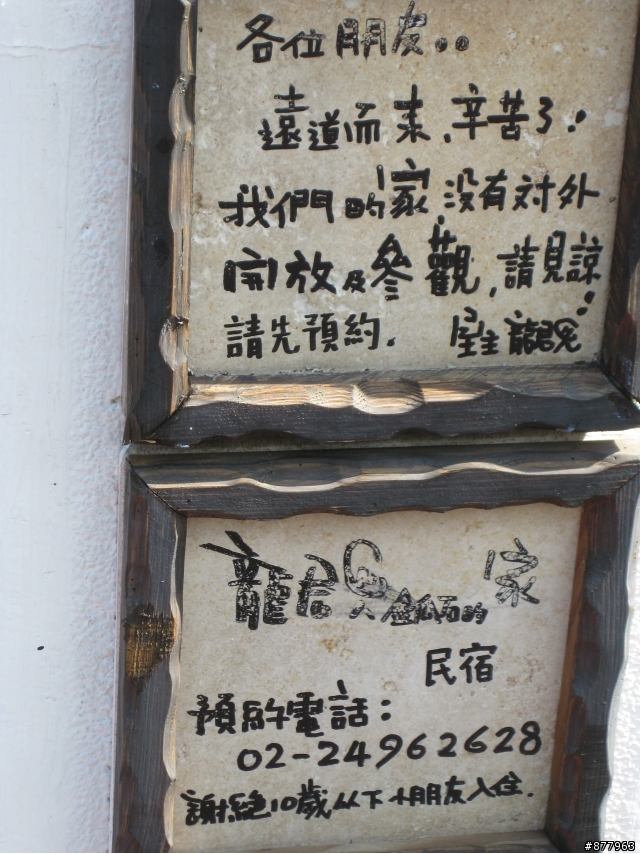 各位朋友..
遠道而來,辛苦了!
我們的家,沒有対外
開放及參觀,請見諒!
請先預約. 屋主龍君兒
龍君兒金瓜石的家
民宿
預約電話:
02-24962628
謝絕10歲以下小朋友入住.
#877963